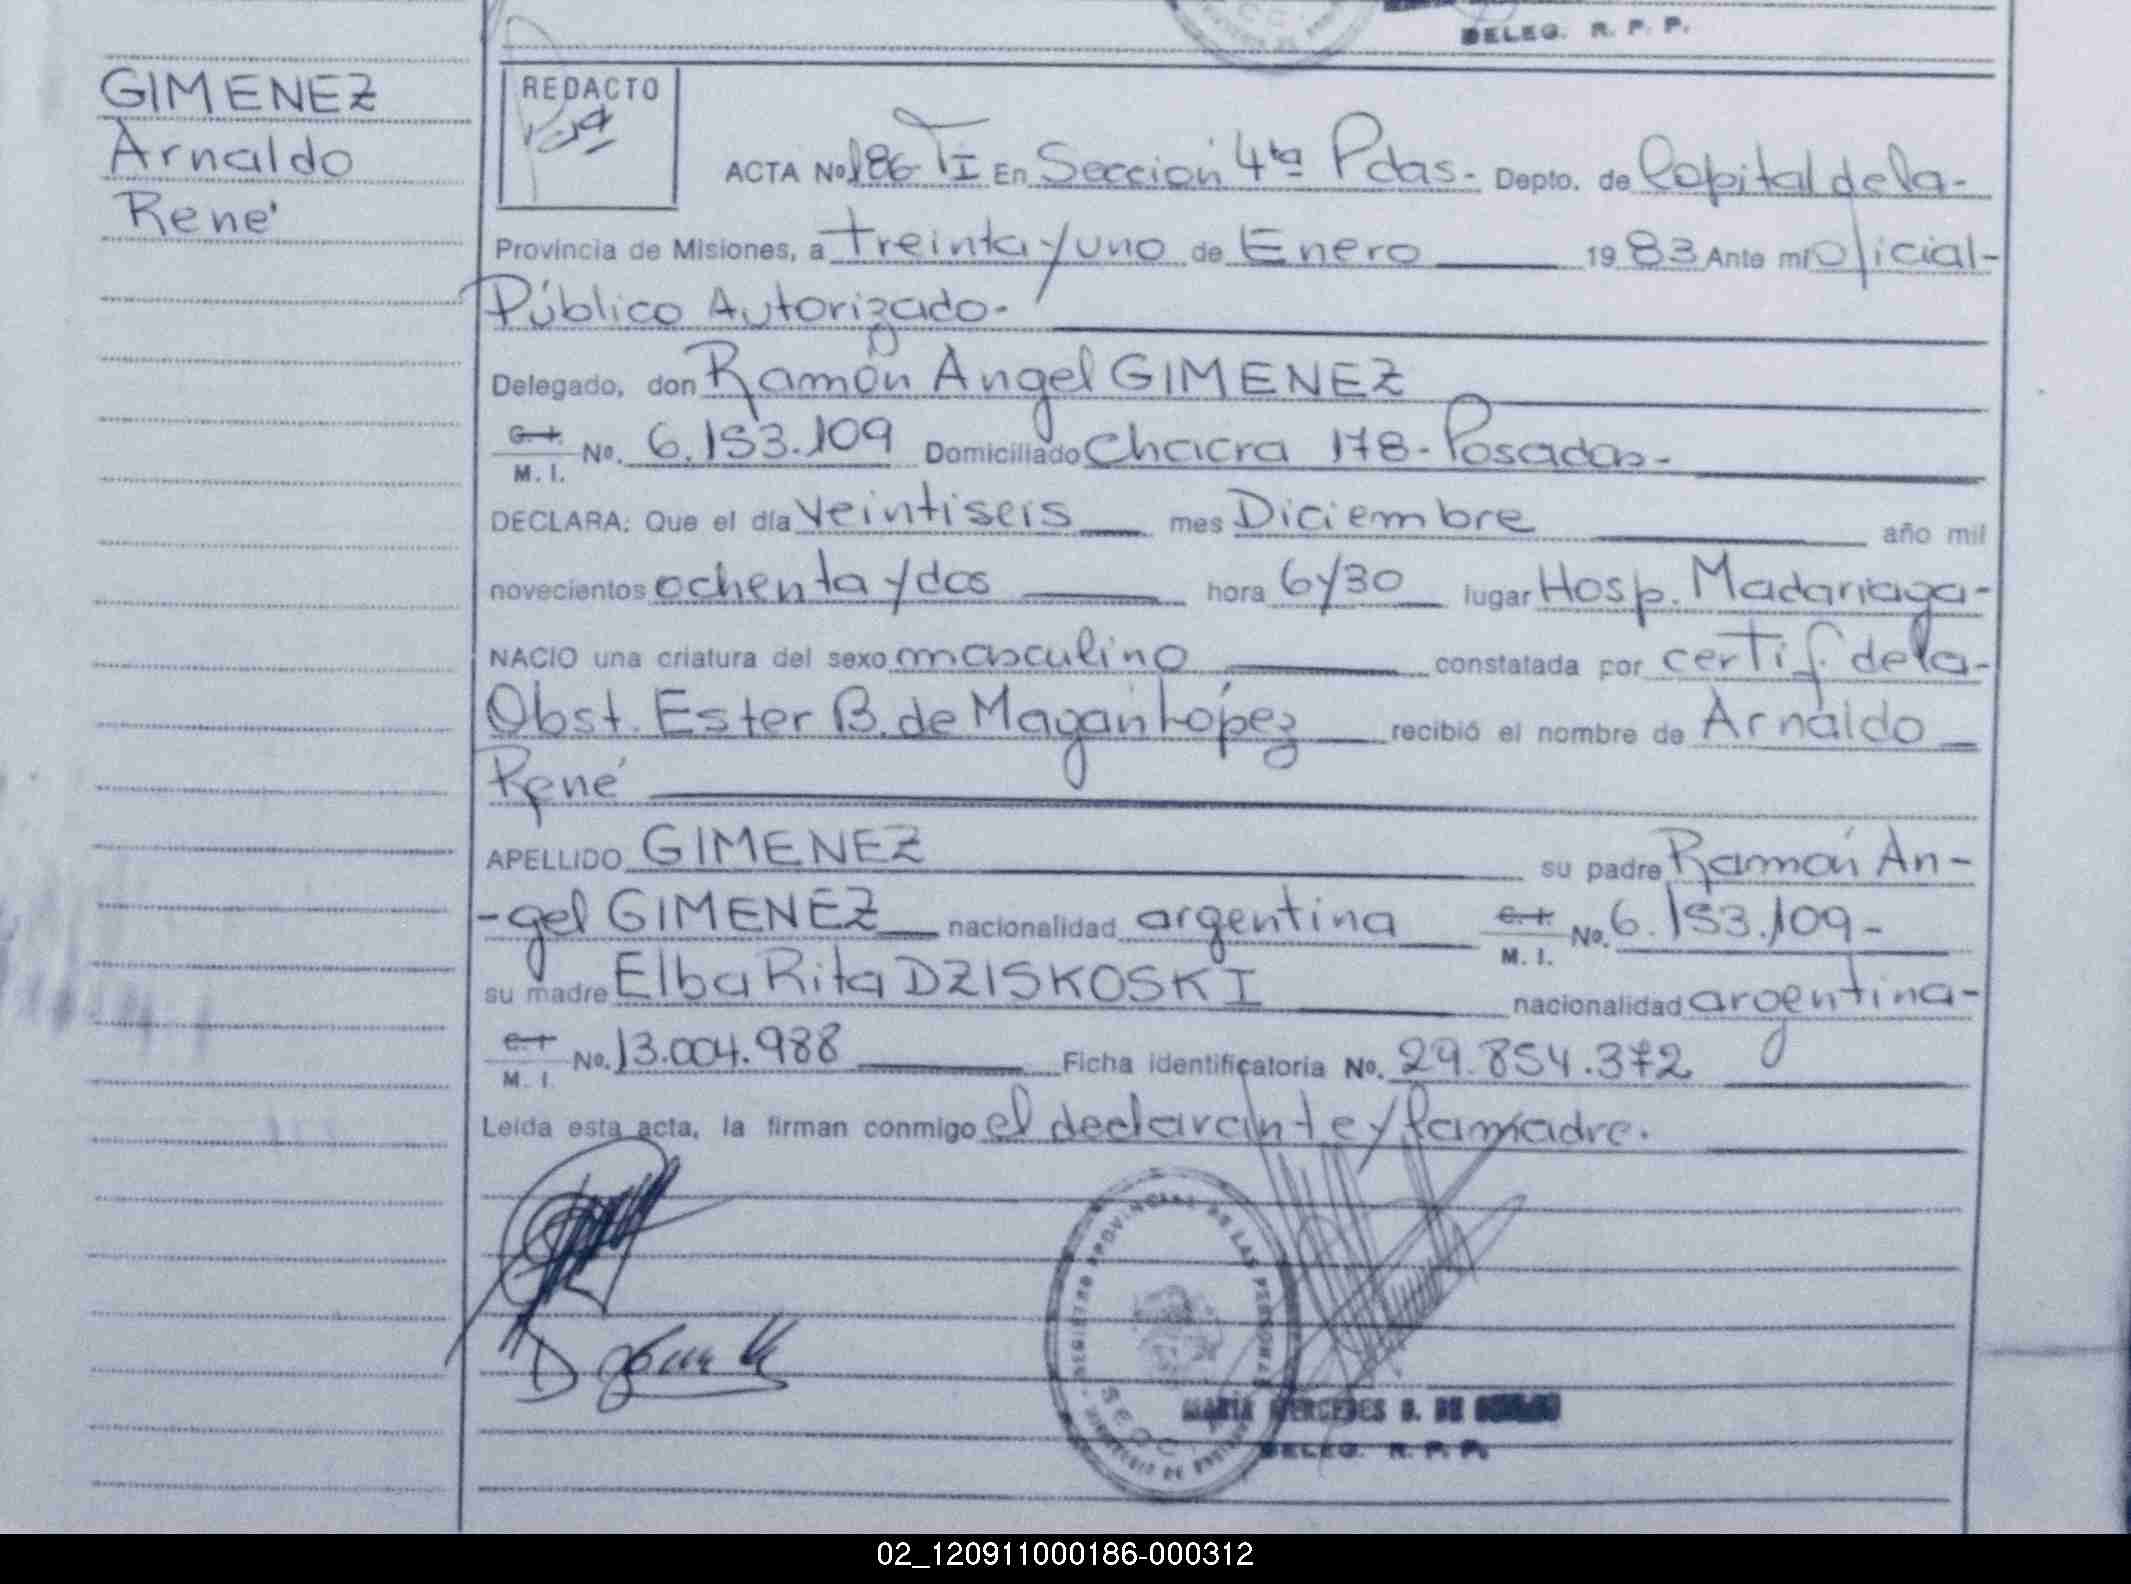 DELEG. R. P. P.
GIMENEZ
Arnaldo
René
REDACTO
ACTA No 186 TI En Sección 4ta Pdas.- Depto. de Capital de la-
Provincia de Misiones, a treinta y uno de Enero 1983 Ante mí Oficial-
Público Autorizado.-
Delegado, don Ramón Angel GIMENEZ
C. I.
M. I. No. 6.153.109 Domiciliado Chacra 178- Posadas-
DECLARA: Que el día Veintiseis mes Diciembre año mil
novecientos ochenta y dos hora 6 y 30 lugar Hosp. Madariaga-
NACIO una criatura del sexo masculino constatada por certif. de la-
Obst. Ester B. de Magan López recibió el nombre de Arnaldo
René
APELLIDO GIMENEZ su padre Ramón An-
-gel GIMENEZ nacionalidad argentina C. I. M. I. No. 6.153.109-
su madre Elba Rita DZISKOSKI nacionalidad argentina-
C. I. M. I. No. 13.004.988 Ficha identificatoria No. 29.854.372
Leída esta acta, la firman conmigo el declarante y la madre.
REGISTRO PROVINCIAL DE LAS PERSONAS
MARIA MERCEDES B. DE
DELEG. R. P. P.
02_120911000186-000312